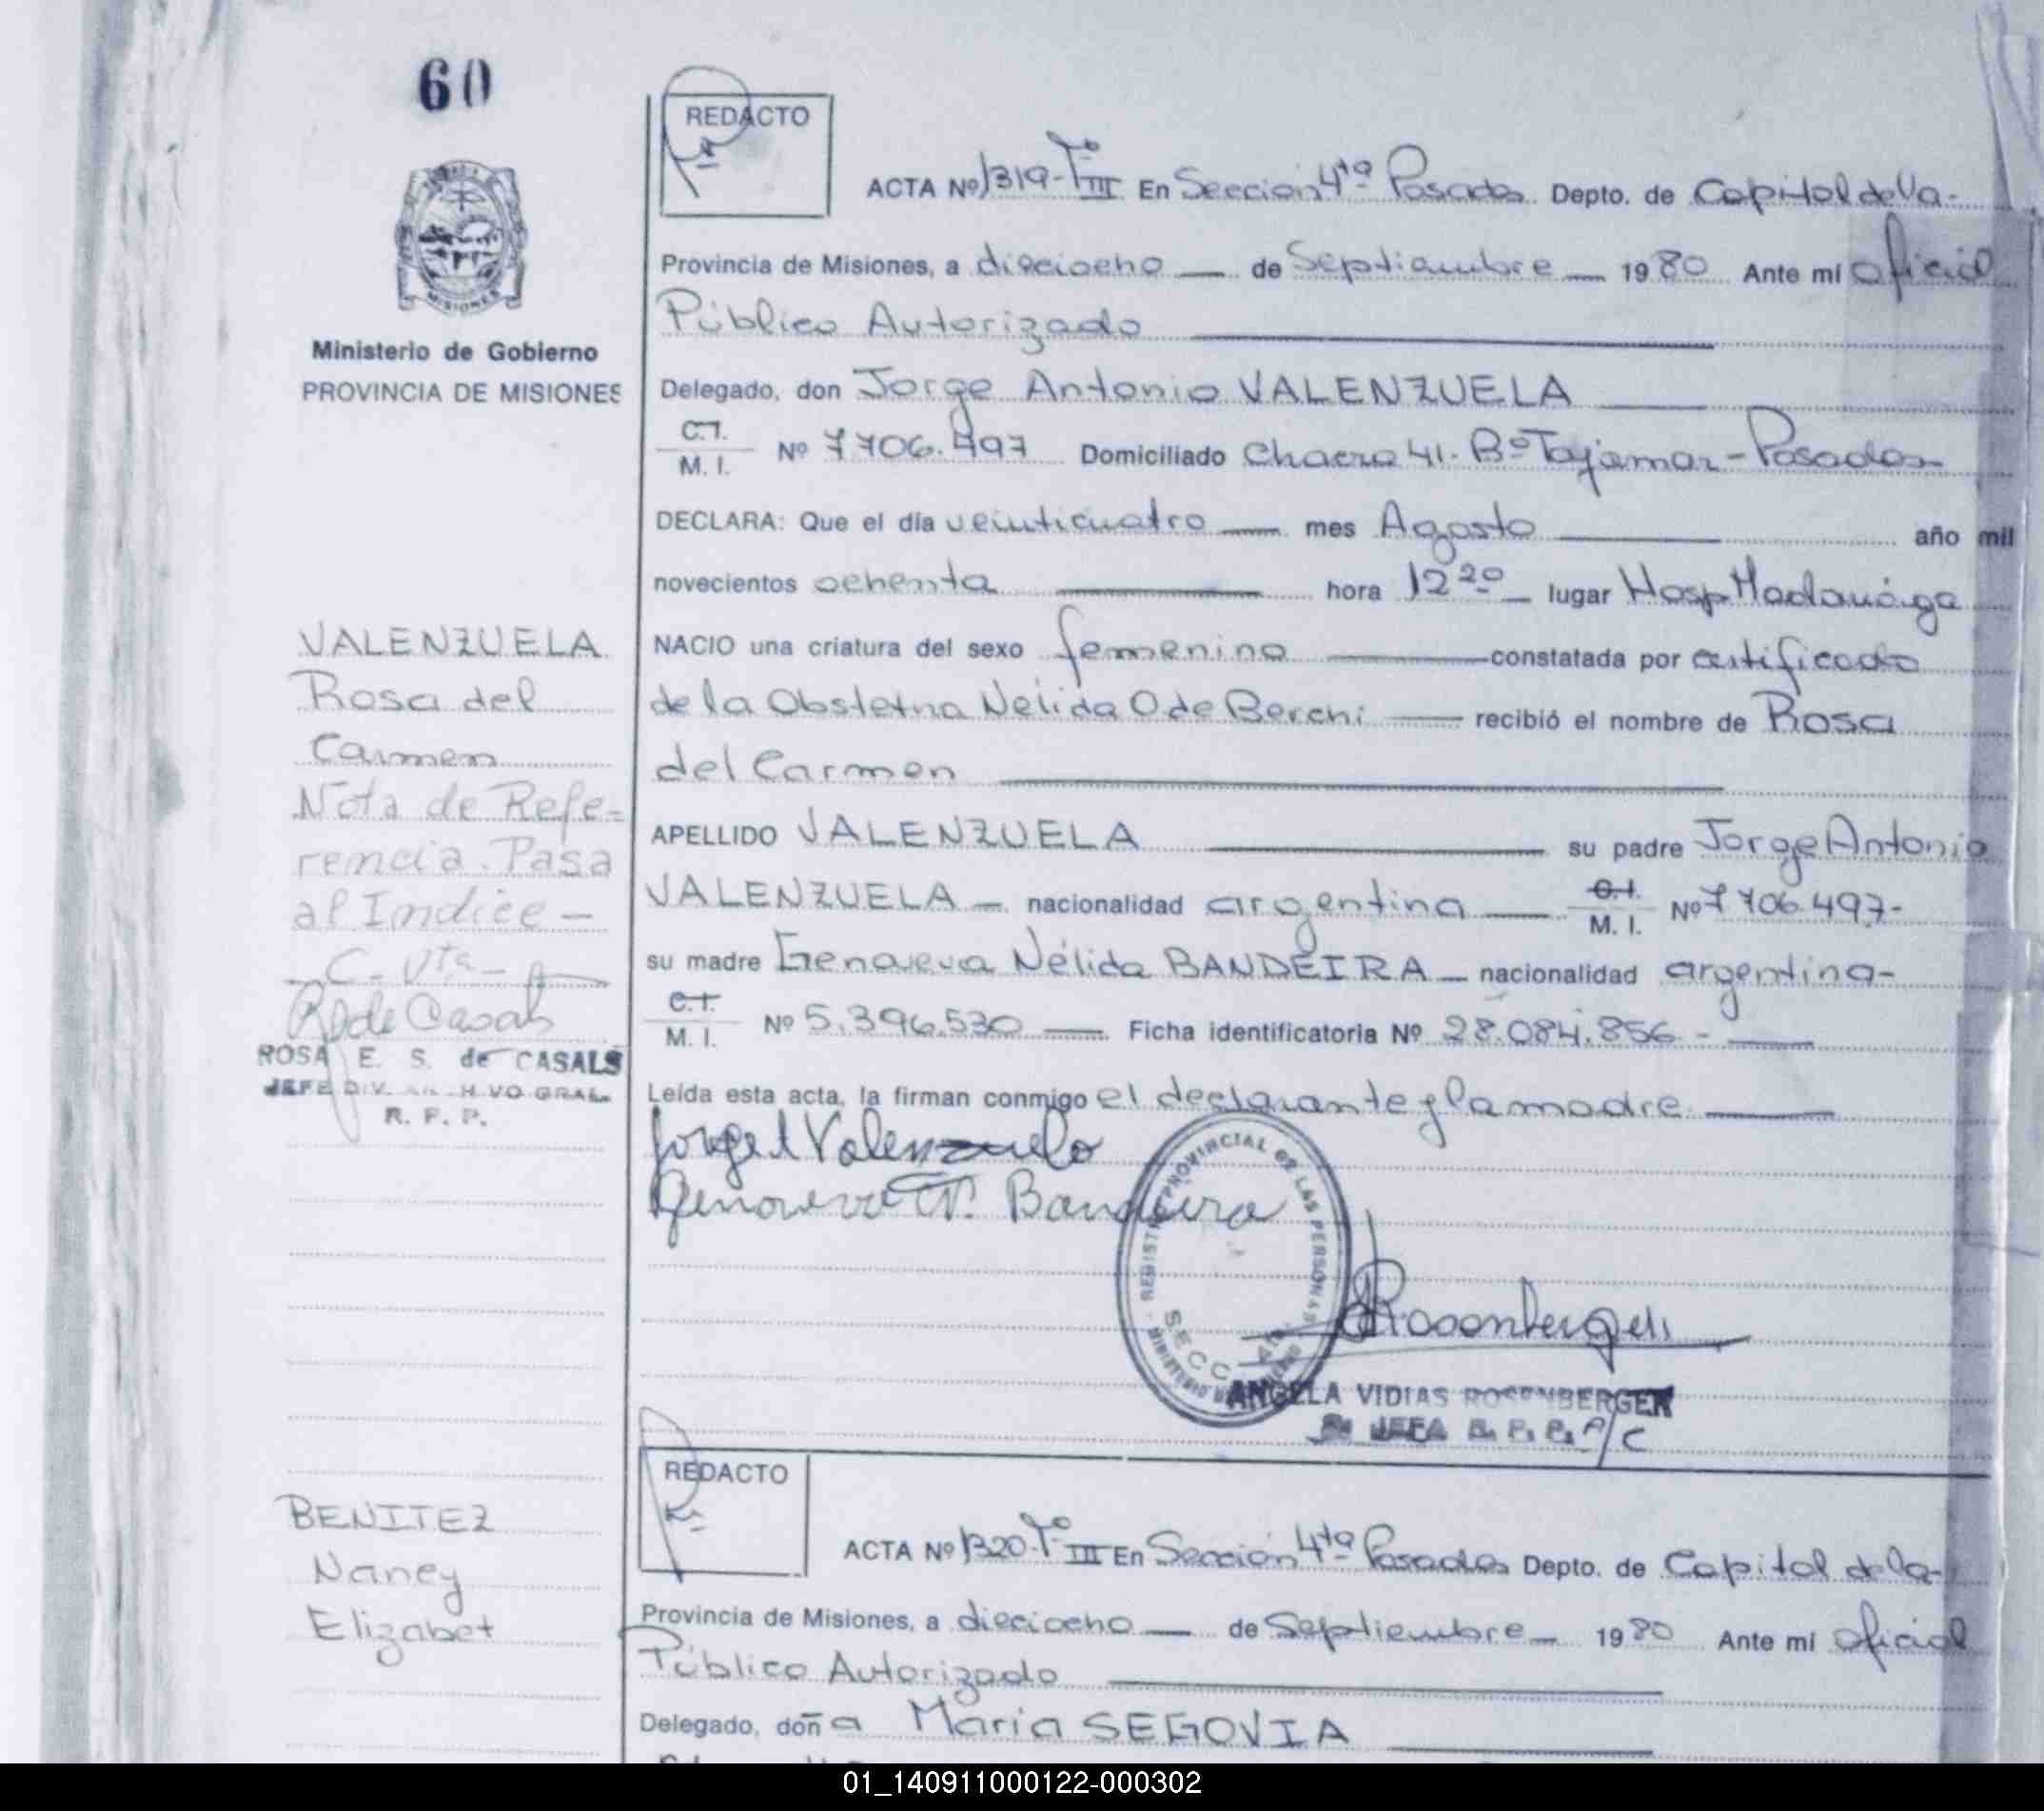 60
REDACTO
ACTA Nº 1319-Tº III En Sección 4ta Posadas Depto. de Capital de la-
MISIONES
Provincia de Misiones, a dieciocho — de Septiembre — 1980 Ante mí Oficial
Público Autorizado
Ministerio de Gobierno
PROVINCIA DE MISIONES
Delegado, don Jorge Antonio VALENZUELA
C.I.
M. I. Nº 7706.497 Domiciliado Chacra 41. Bº Tajamar - Posadas
DECLARA: Que el día veinticuatro — mes Agosto — año mil
novecientos ochenta — hora 12 20 — lugar Hosp Madariaga
NACIO una criatura del sexo femenino — constatada por certificado
de la Obstetra Nelida O de Berchi — recibió el nombre de Rosa
del Carmen
APELLIDO VALENZUELA — su padre Jorge Antonio
VALENZUELA — nacionalidad argentina — C.I.
M. I. Nº 7706.497-
su madre Genoveva Nélida BANDEIRA — nacionalidad argentina-
C.I.
M. I. Nº 5.396.530 — Ficha identificatoria Nº 28.084.856 -
Leída esta acta, la firman conmigo el declarante y la madre
Jorge A Valenzuela
Genoveva N. Bandeira
REGISTRO PROVINCIAL DE LAS PERSONAS
SECC. 4ta
MINISTERIO
Rosenberger
ANGELA VIDIAS ROSENBERGER
JEFA R. P. P. A/C
VALENZUELA
Rosa del
Carmen
Nota de Refe-
rencia. Pasa
al Indice -
C. Vta -
R de Casals
ROSA E. S. de CASALS
JEFE DIV. ARCHIVO GRAL.
R. P. P.
REDACTO
ACTA Nº 1320-Tº III En Sección 4ta Posadas Depto. de Capital de la-
Provincia de Misiones, a dieciocho — de Septiembre — 1980 Ante mí Oficial
Público Autorizado
Delegado, doña María SEGOVIA
BENITEZ
Nancy
Elizabet
01_140911000122-000302